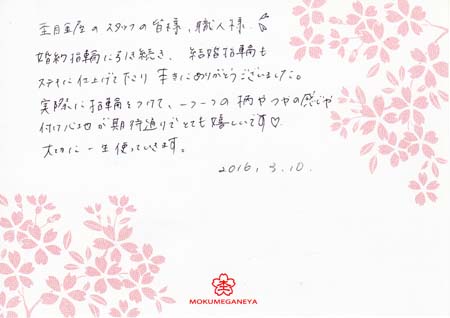 杢目金屋のスタッフの皆様、職人様。
婚約指輪に引き続き、結婚指輪も
ステキに仕上げて下さり本当にありがとうございました。
実際に指輪をつけて、一つ一つの柄やつやの感じや
付け心地が期待通りでとても嬉しいです♡
大切に一生使っていきます。
2016. 3. 10.
MOKUMEGANEYA